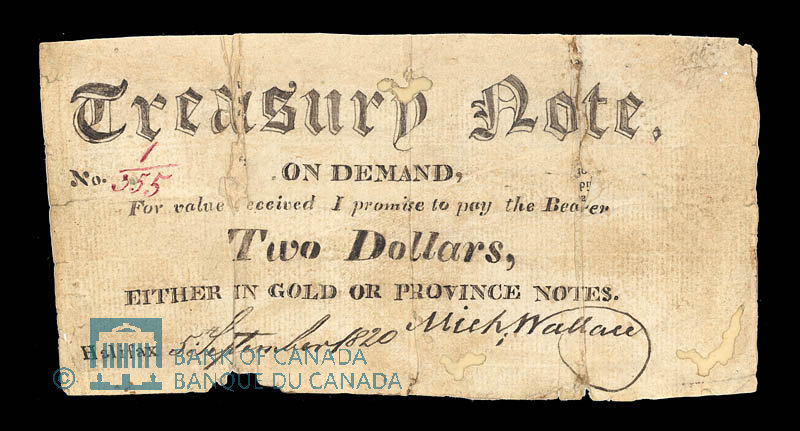 Treasury Note.
No. 1/355
ON DEMAND,
For value received I promise to pay the Bearer
Two Dollars,
EITHER IN GOLD OR PROVINCE NOTES.
Halifax 5th September 1820 Mich. Wallace
© BANK OF CANADA
BANQUE DU CANADA